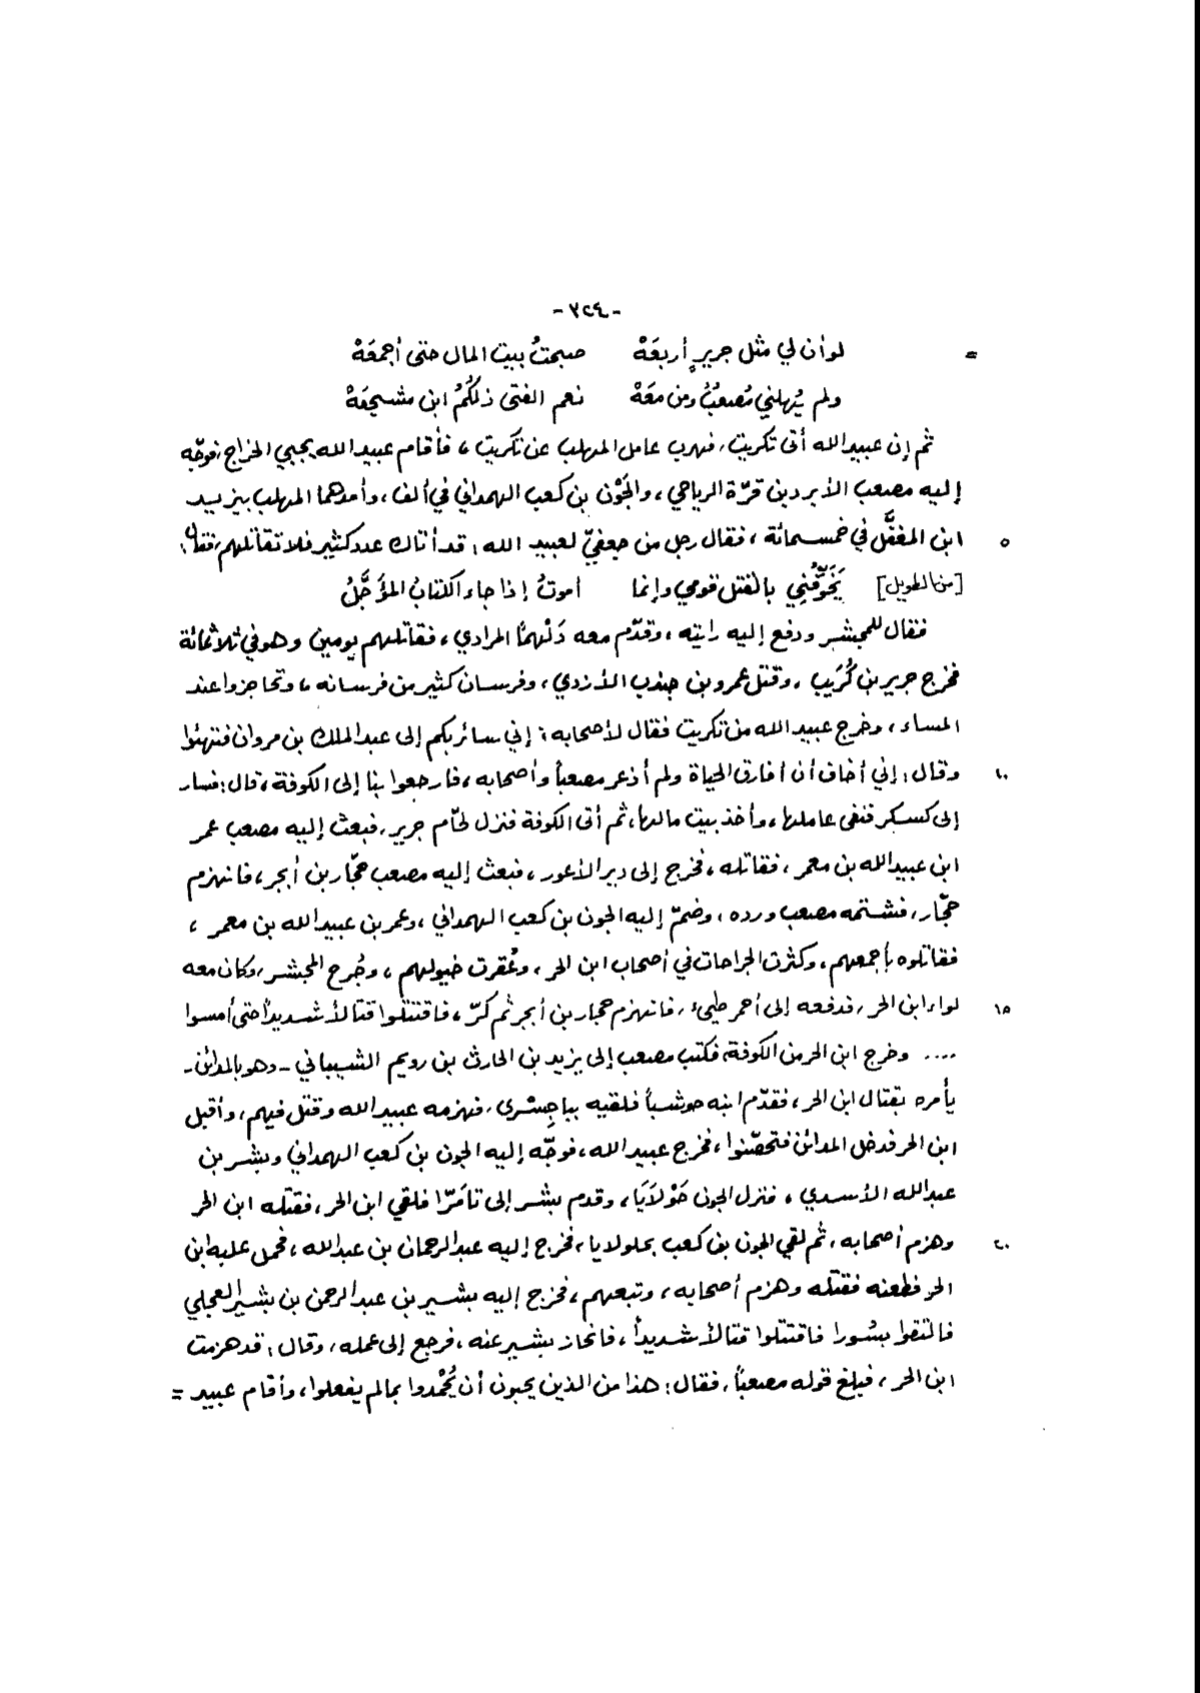 -٣٢٤-
= لو أن لي مثل جريرٍ أربعَهْ صبحتُ ببيت المال حتى أجمعَهْ
ولم يُهلني مُصعبٌ ومن معَهْ نعم الفتى ذلكُمُ ابن مشجعَهْ
ثم إن عبيد الله أتى تكريت، فهرب عامل المهلب عن تكريت، فأقام عبيد الله يجبي الخراج، فوجّه
إليه مصعب الأبرد بن قرّة الرياحي، والجَوْن بن كعب الهمداني في ألف، وأمدهما المهلب بيزيد
٥ ابن المغفَّل في خمسمائة، فقال رجل من جعفيّ لعبيد الله: قد أتاك عدد كثير فلا تقاتلهم، فقال:
[من الطويل] يُخَوِّفُنِي بالقتل قومي وإنما أموتُ إذا جاء الكتابُ المؤجَّلُ
فقال للمجشر ودفع إليه رايته، وقدّم معه دَلْهمًا المرادي، فقاتلهم يومين وهو في ثلاثمائة
فخرج جرير بن كُرَيب، وقتل عمرو بن جندب الأزدي، وفرسان كثير من فرسانه، وتحاجزوا عند
المساء، وخرج عبيد الله من تكريت فقال لأصحابه: إني سائر بكم إلى عبد الملك بن مروان فتهيئوا
١٠ وقال: إني أخاف أن أفارق الحياة ولم أذعر مصعباً وأصحابه، فارجعوا بنا إلى الكوفة، قال: فسار
إلى كسكر فنفى عاملها، وأخذ بيت مالها، ثم أتى الكوفة فنزل لحّام جرير، فبعث إليه مصعب عمر
ابن عبيد الله بن معمر، فقاتله، فخرج إلى دير الأعور، فبعث إليه مصعب حجّار بن أبجر، فانهزم
حجّار، فشتمه مصعب ورده، وضمّ إليه الجون بن كعب الهمداني، وعمر بن عبيد الله بن معمر،
فقاتلوه بأجمعهم، وكثرت الجراحات في أصحاب ابن الحر، وعُقرت خيولهم، وجُرح المجشر، وكان معه
١٥ لواء ابن الحر، فدفعه إلى أحمر طيئ، فانهزم حجار بن أبجر ثم كرّ، فاقتتلوا قتالاً شديداً حتى أمسوا
.... وخرج ابن الحر من الكوفة، فكتب مصعب إلى يزيد بن الحارث بن رويم الشيباني - وهو بالمدائن -
يأمره بقتال ابن الحر، فقدّم ابنه حوشباً فلقيه بباجِسْرى، فهزمه عبيد الله وقتل فيهم، وأقبل
ابن الحر فدخل المدائن فتحصّنوا، فخرج عبيد الله، فوجّه إليه الجون بن كعب الهمداني وبشر بن
عبد الله الأسدي، فنزل الجون حَوْلايَا، وقدم بشر إلى تامَرّا فلقي ابن الحر، فقتله ابن الحر
٢٠ وهزم أصحابه، ثم لقي الجون بن كعب بحولايا، فخرج إليه عبد الرحمان بن عبد الله، فحمل عليه ابن
الحر فطعنه فقتله وهزم أصحابه، وتبعهم، فخرج إليه بشير بن عبد الرحمن بن بشير العجلي
فالتقوا بسُورا فاقتتلوا قتالاً شديداً، فانحاز بشير عنه، فرجع إلى عمله، وقال: قد هزمت
ابن الحر، فبلغ قوله مصعباً، فقال: هذا من الذين يحبون أن يُحْمَدوا بما لم يفعلوا، وأقام عبيد =